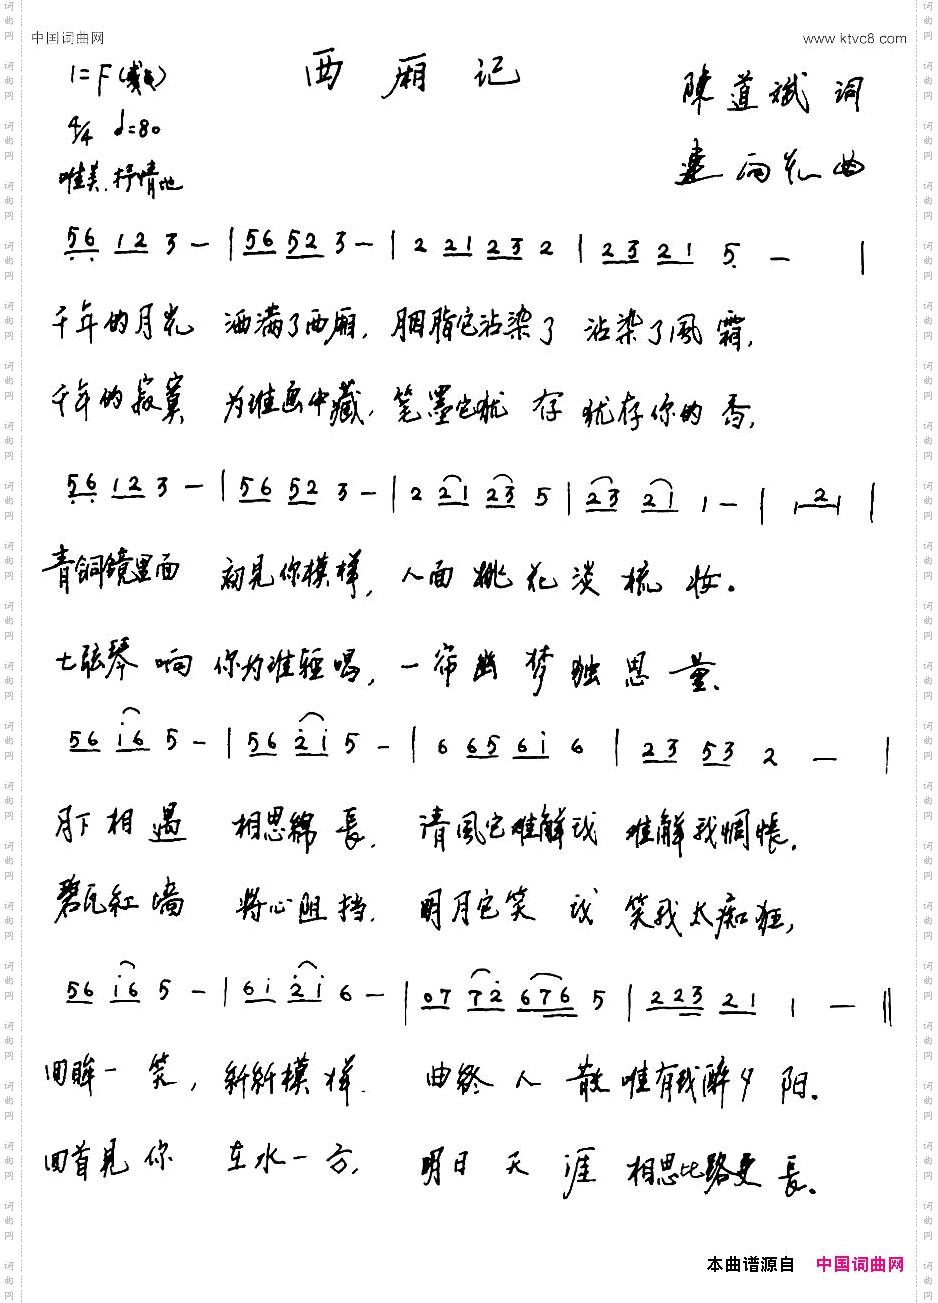 中国词曲网 www.ktvc8.com
西厢记
1=F
4/4 ♩=80
唯美.抒情地
陳道斌 词
建 向 曲
56 12 3 — | 56 52 3 — | 2 21 23 2 | 23 21 5 — |
千年的月光 洒满了西厢, 胭脂它沾染了 沾染了風霜,
千年的寂寞 为谁画中藏, 笔墨它犹存 犹存你的香,
56 12 3 — | 56 52 3 — | 2 21 23 5 | 23 21 1 — | 1 2 1 |
青铜鏡里面 初見你模样, 人面桃花淡梳妆。
七弦琴响 你为谁轻唱, 一帘幽梦独思量.
56 i6 5 — | 56 2i 5 — | 6 65 6i 6 | 23 53 2 — |
月下相遇 相思綿長, 清風它难解我 难解我惆怅.
碧瓦紅墙 将心阻挡, 明月它笑我 笑我太痴狂,
56 i6 5 — | 6i 2i 6 — | 07 72 676 5 | 223 21 1 — ‖
回眸一笑, 新新模样. 曲终人散唯有我醉夕阳。
回首見你 在水一方, 明日天涯 相思比路更長。
本曲谱源自 中国词曲网